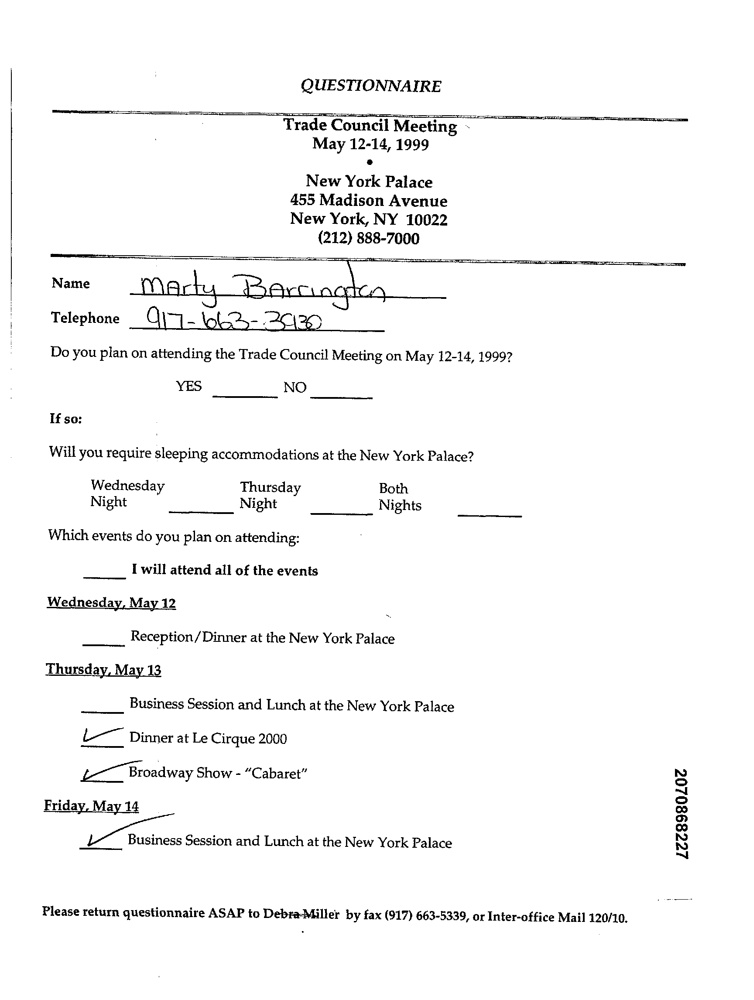 QUESTIONNAIRE
Trade Council Meeting
May 12-14, 1999
•
New York Palace
455 Madison Avenue
New York, NY 10022
(212) 888-7000
Name Marty Barrington
Telephone 917-663-3930
Do you plan on attending the Trade Council Meeting on May 12-14, 1999?
YES ______ NO ______
If so:
Will you require sleeping accommodations at the New York Palace?
Wednesday Thursday Both
Night ______ Night ______ Nights ______
Which events do you plan on attending:
____ I will attend all of the events
Wednesday, May 12
____ Reception/Dinner at the New York Palace
Thursday, May 13
____ Business Session and Lunch at the New York Palace
✓ Dinner at Le Cirque 2000
✓ Broadway Show - "Cabaret"
Friday, May 14
✓ Business Session and Lunch at the New York Palace
2070868227
Please return questionnaire ASAP to Debra Miller by fax (917) 663-5339, or Inter-office Mail 120/10.